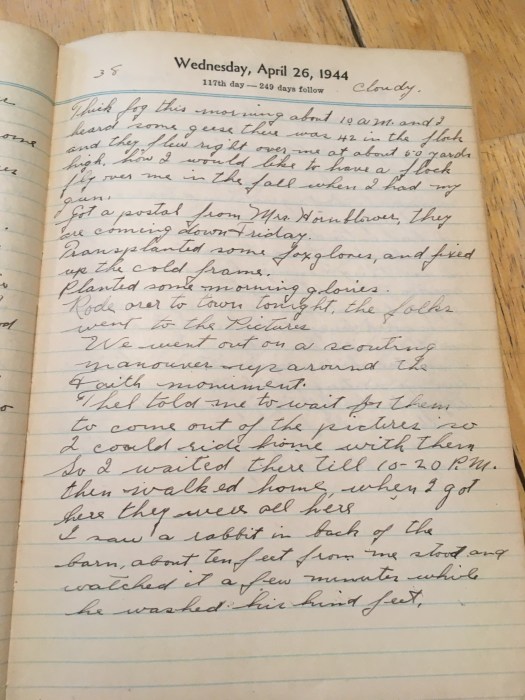 Wednesday, April 26, 1944
38
117th day — 249 days follow
Cloudy.
Thick fog this morning about 10 a.m. and I
heard some geese there was 42 in the flock
and they flew right over me at about 50 yards
high, how I would like to have a flock
fly over me in the fall when I had my
gun.
Got a postal from Mrs. Hornblower, they
are coming down Friday.
Transplanted some foxgloves, and fixed
up the cold frame.
Planted some morning gloires.
Rode over to town tonight, the folks
went to the Pictures
We went out on a scouting
manouver up around the
Faith monument.
Thel told me to wait for them
to come out of the pictures so
I could ride home with them
So I waited there till 10-20 P.M.
then walked home, when I got
here they were all here
I saw a rabbit in back of the
barn, about ten feet from me stood and
watched it a few minutes while
he washed his hind feet.